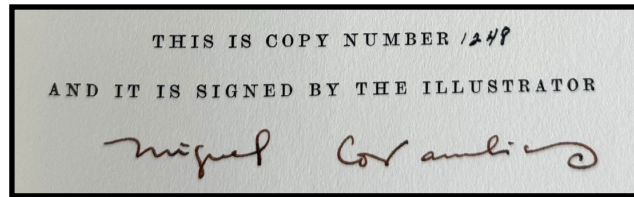 THIS IS COPY NUMBER 1249
AND IT IS SIGNED BY THE ILLUSTRATOR
Miguel Covarrubias